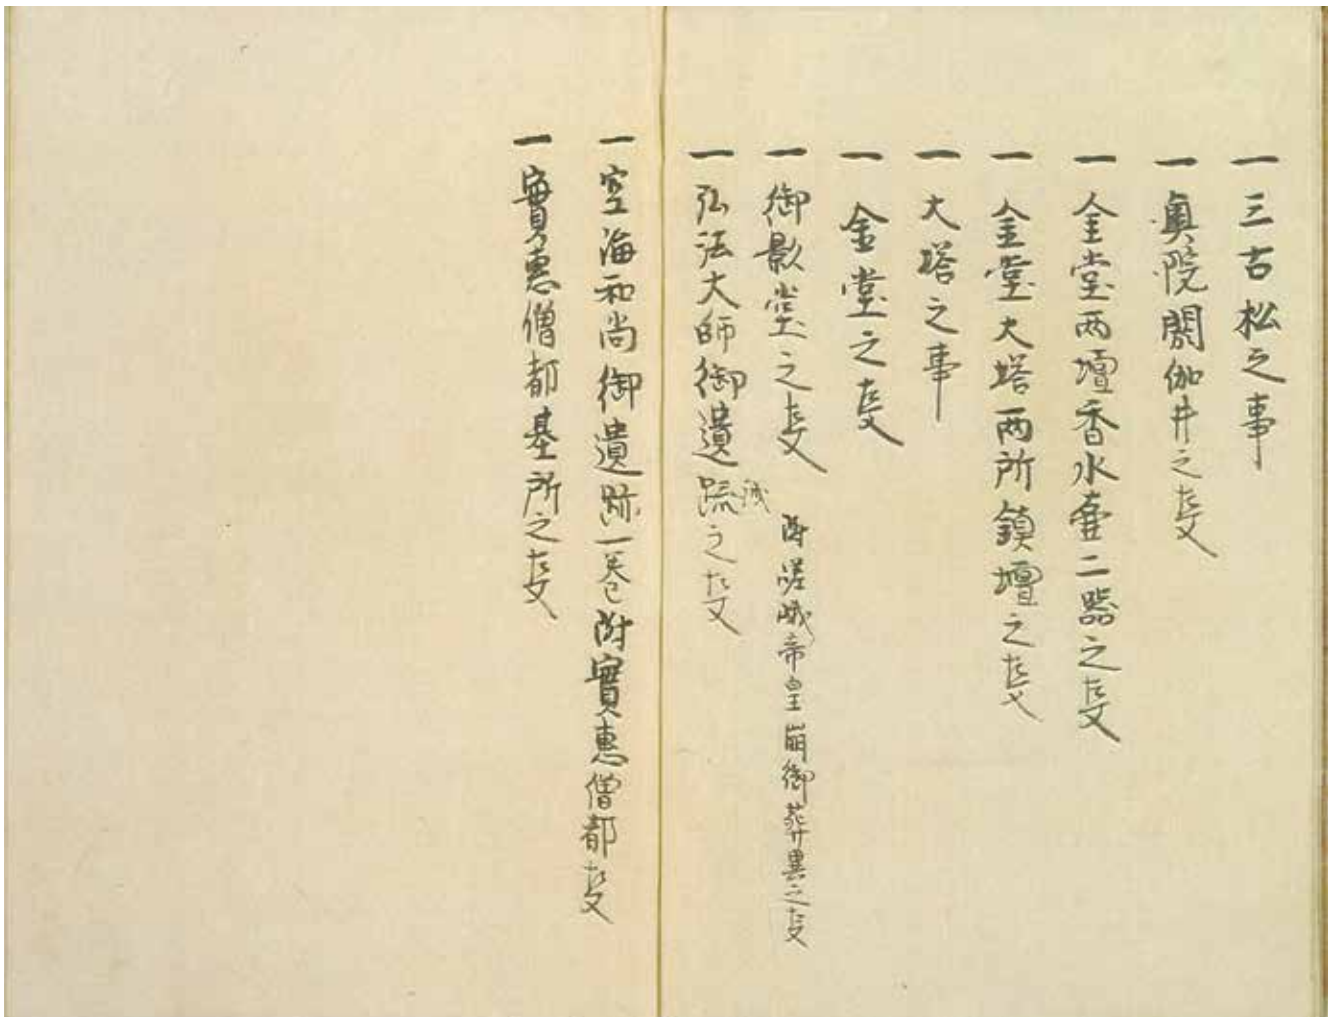 一三古松之事
一奥院閼伽井之㕝
一金堂两壇香水壷二器之㕝
一金堂大塔両所鎮壇之㕝
一大塔之事
一金堂之㕝
一御影堂之㕝 附嵯峨帝皇崩御葬異之㕝
一弘法大師御遺跡之㕝
一空海和尚御遺跡一巻附實惠僧都㕝
一實惠僧都基所之㕝